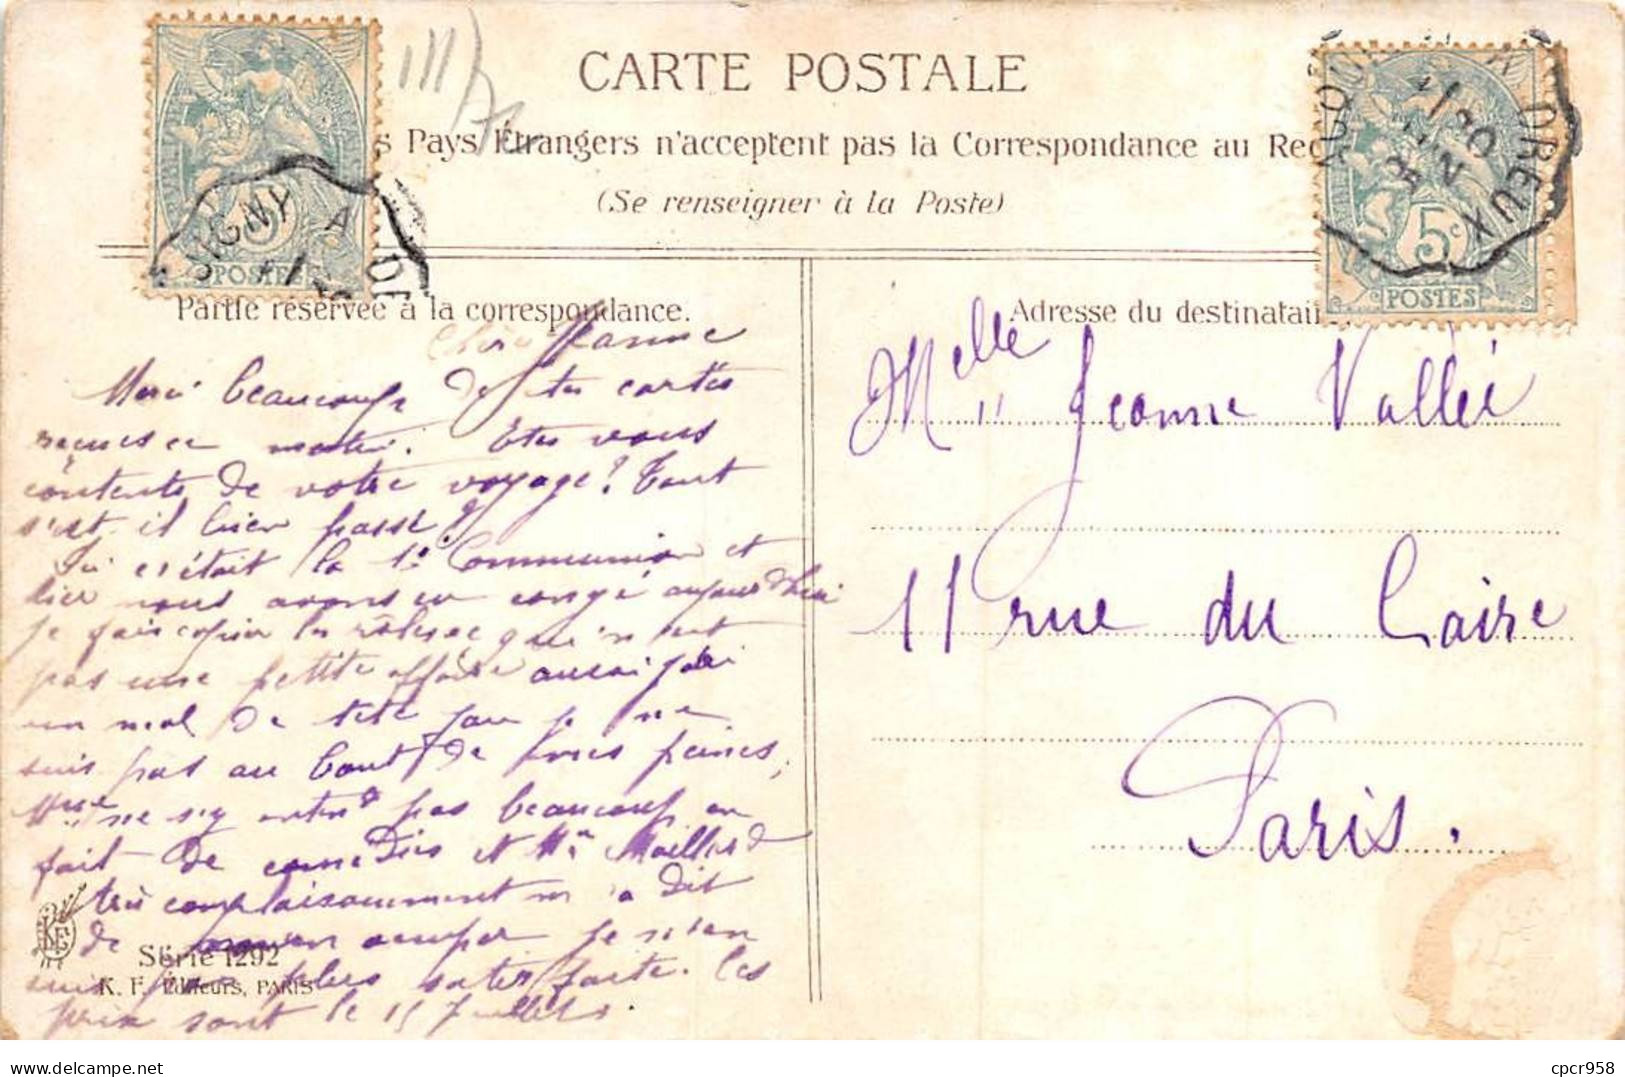 CARTE POSTALE
s Pays Étrangers n'acceptent pas la Correspondance au Rec
(Se renseigner à la Poste)
Partie réservée à la correspondance.
Chère Jeanne
Merci beaucoup de tes cartes
reçues ce matin. Etes vous
contents de votre voyage? Tout
s'est-il bien passé?
Ici c'était la 1e Communion et
hier nous avons eu congé aujourd'hui
je fais copier les rôles ce qui n'est
pas une petite affaire aussi j'ai
un mal de tête fou je ne
suis pas au bout de mes peines,
Mme ne s'y entend pas beaucoup en
fait de comédies et Mr Maillard
très complaisamment m'a dit
de m'en occuper je n'en
suis pas plus satisfaite. Les
prix sont le 15 Juillet.
Série 1292
K. F. Éditeurs, PARIS
Adresse du destinatai
Melle Jeanne Vallée
11 rue du Caire
Paris.
POSTES
5c
POSTES
DREUX
cpcr958
www.delcampe.net